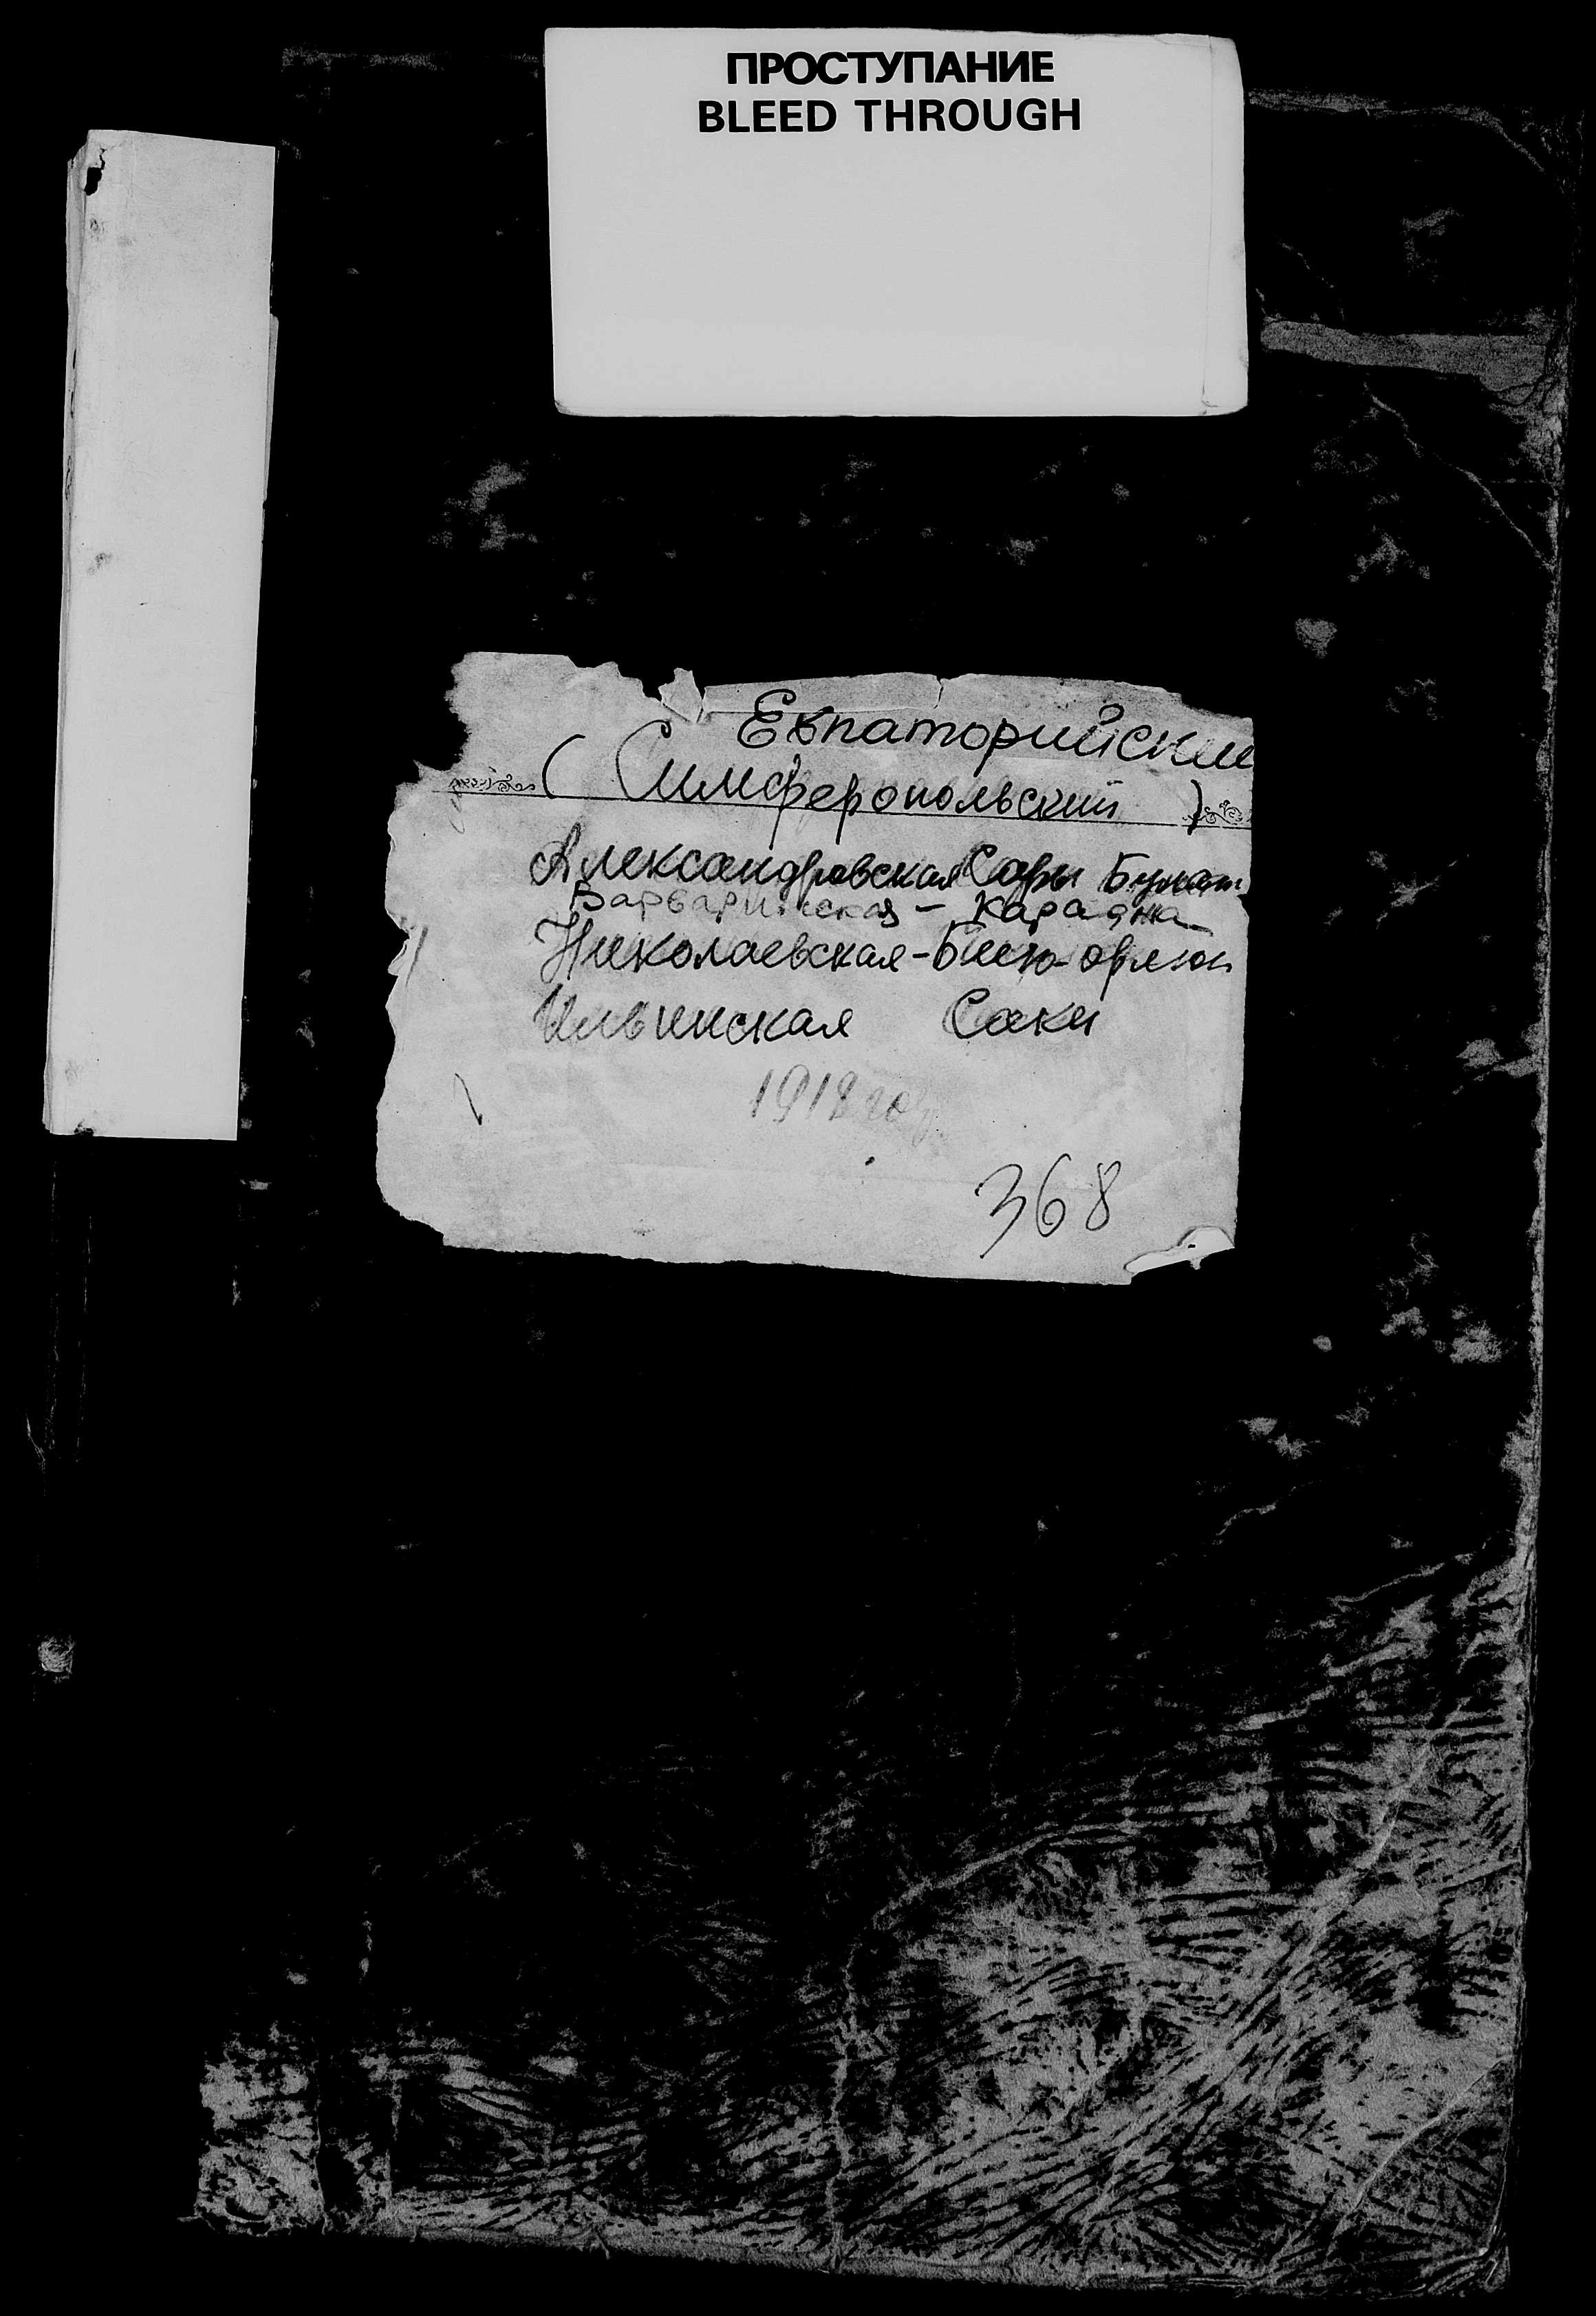 ПРОСТУПАНИЕ
BLEED THROUGH
Евпаторийский
( Симферопольский )
Александровская Сары Булат
Варваринская - Караджа
Николаевская - Биюк-орлюк
Ильинская Саки
1918 год
368